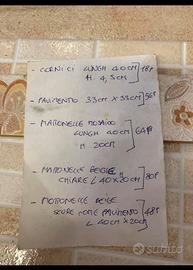 - CORNICI LUNGH 40CM
H. 4,5CM ] 48P
- PAVIMENTO 33CM X 33CM ] 56P
- MATTONELLE MOSAICO
LUNGH 40CM ] 64P
H. 20CM
- MATTONELLE BEIGE
CHIARE L 40 X 20CM ] 80P
- MATTONELLE BEIGE
SCURE COME PAVIMENTO ] 48P
L 40CM X 20CM
subito